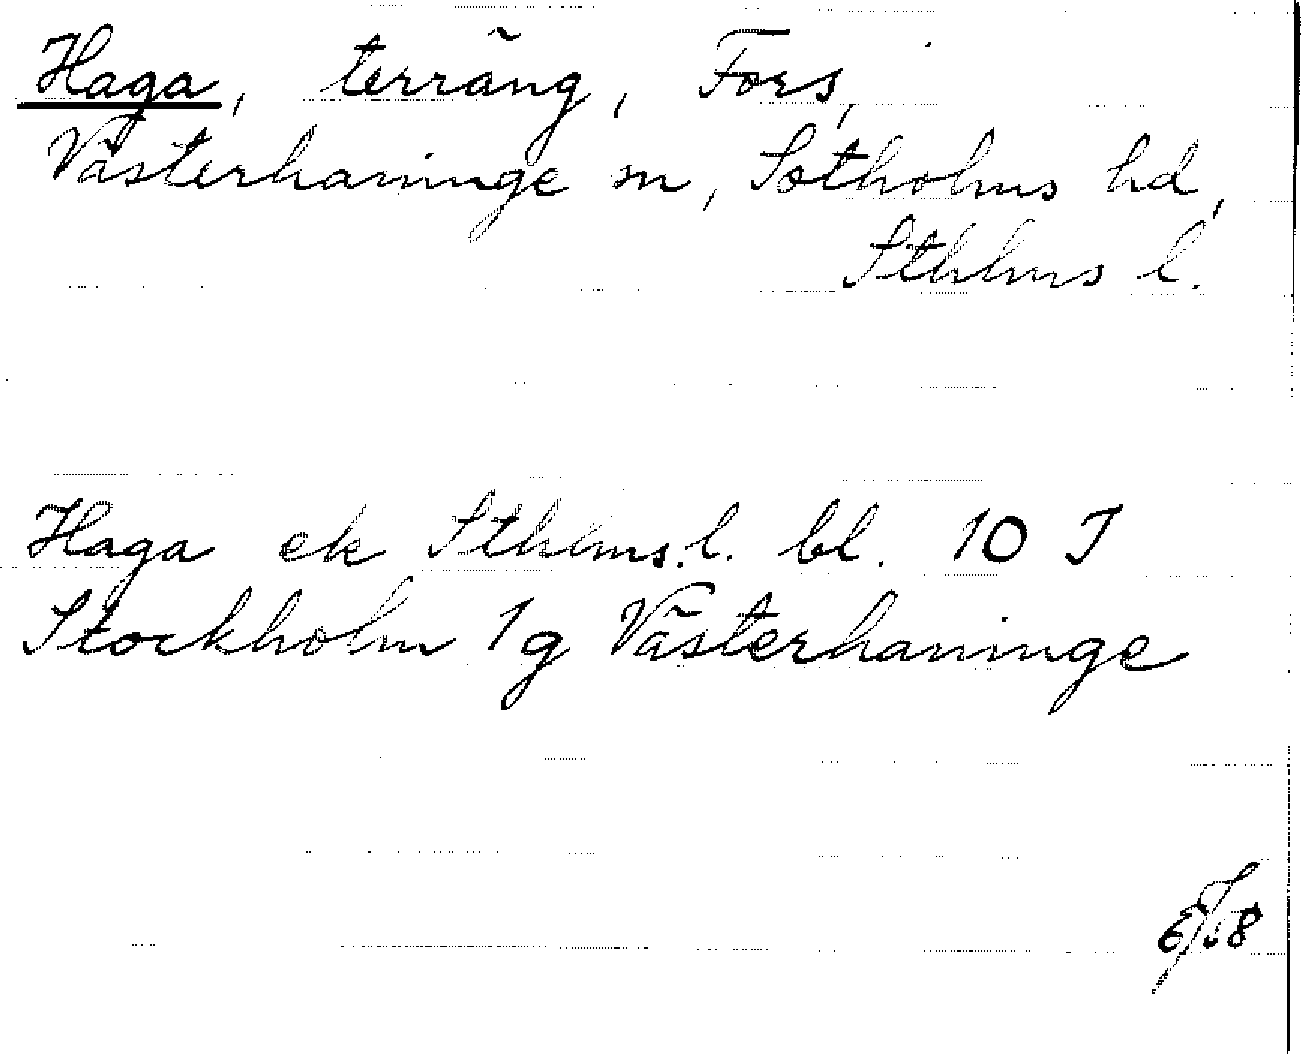 Haga, terräng, Fors,
Västerhaninge sn, Sotholms hd,
Sthlms l.
Haga ek Sthlms. l. bl. 10 I
Stockholm 1g Västerhaninge